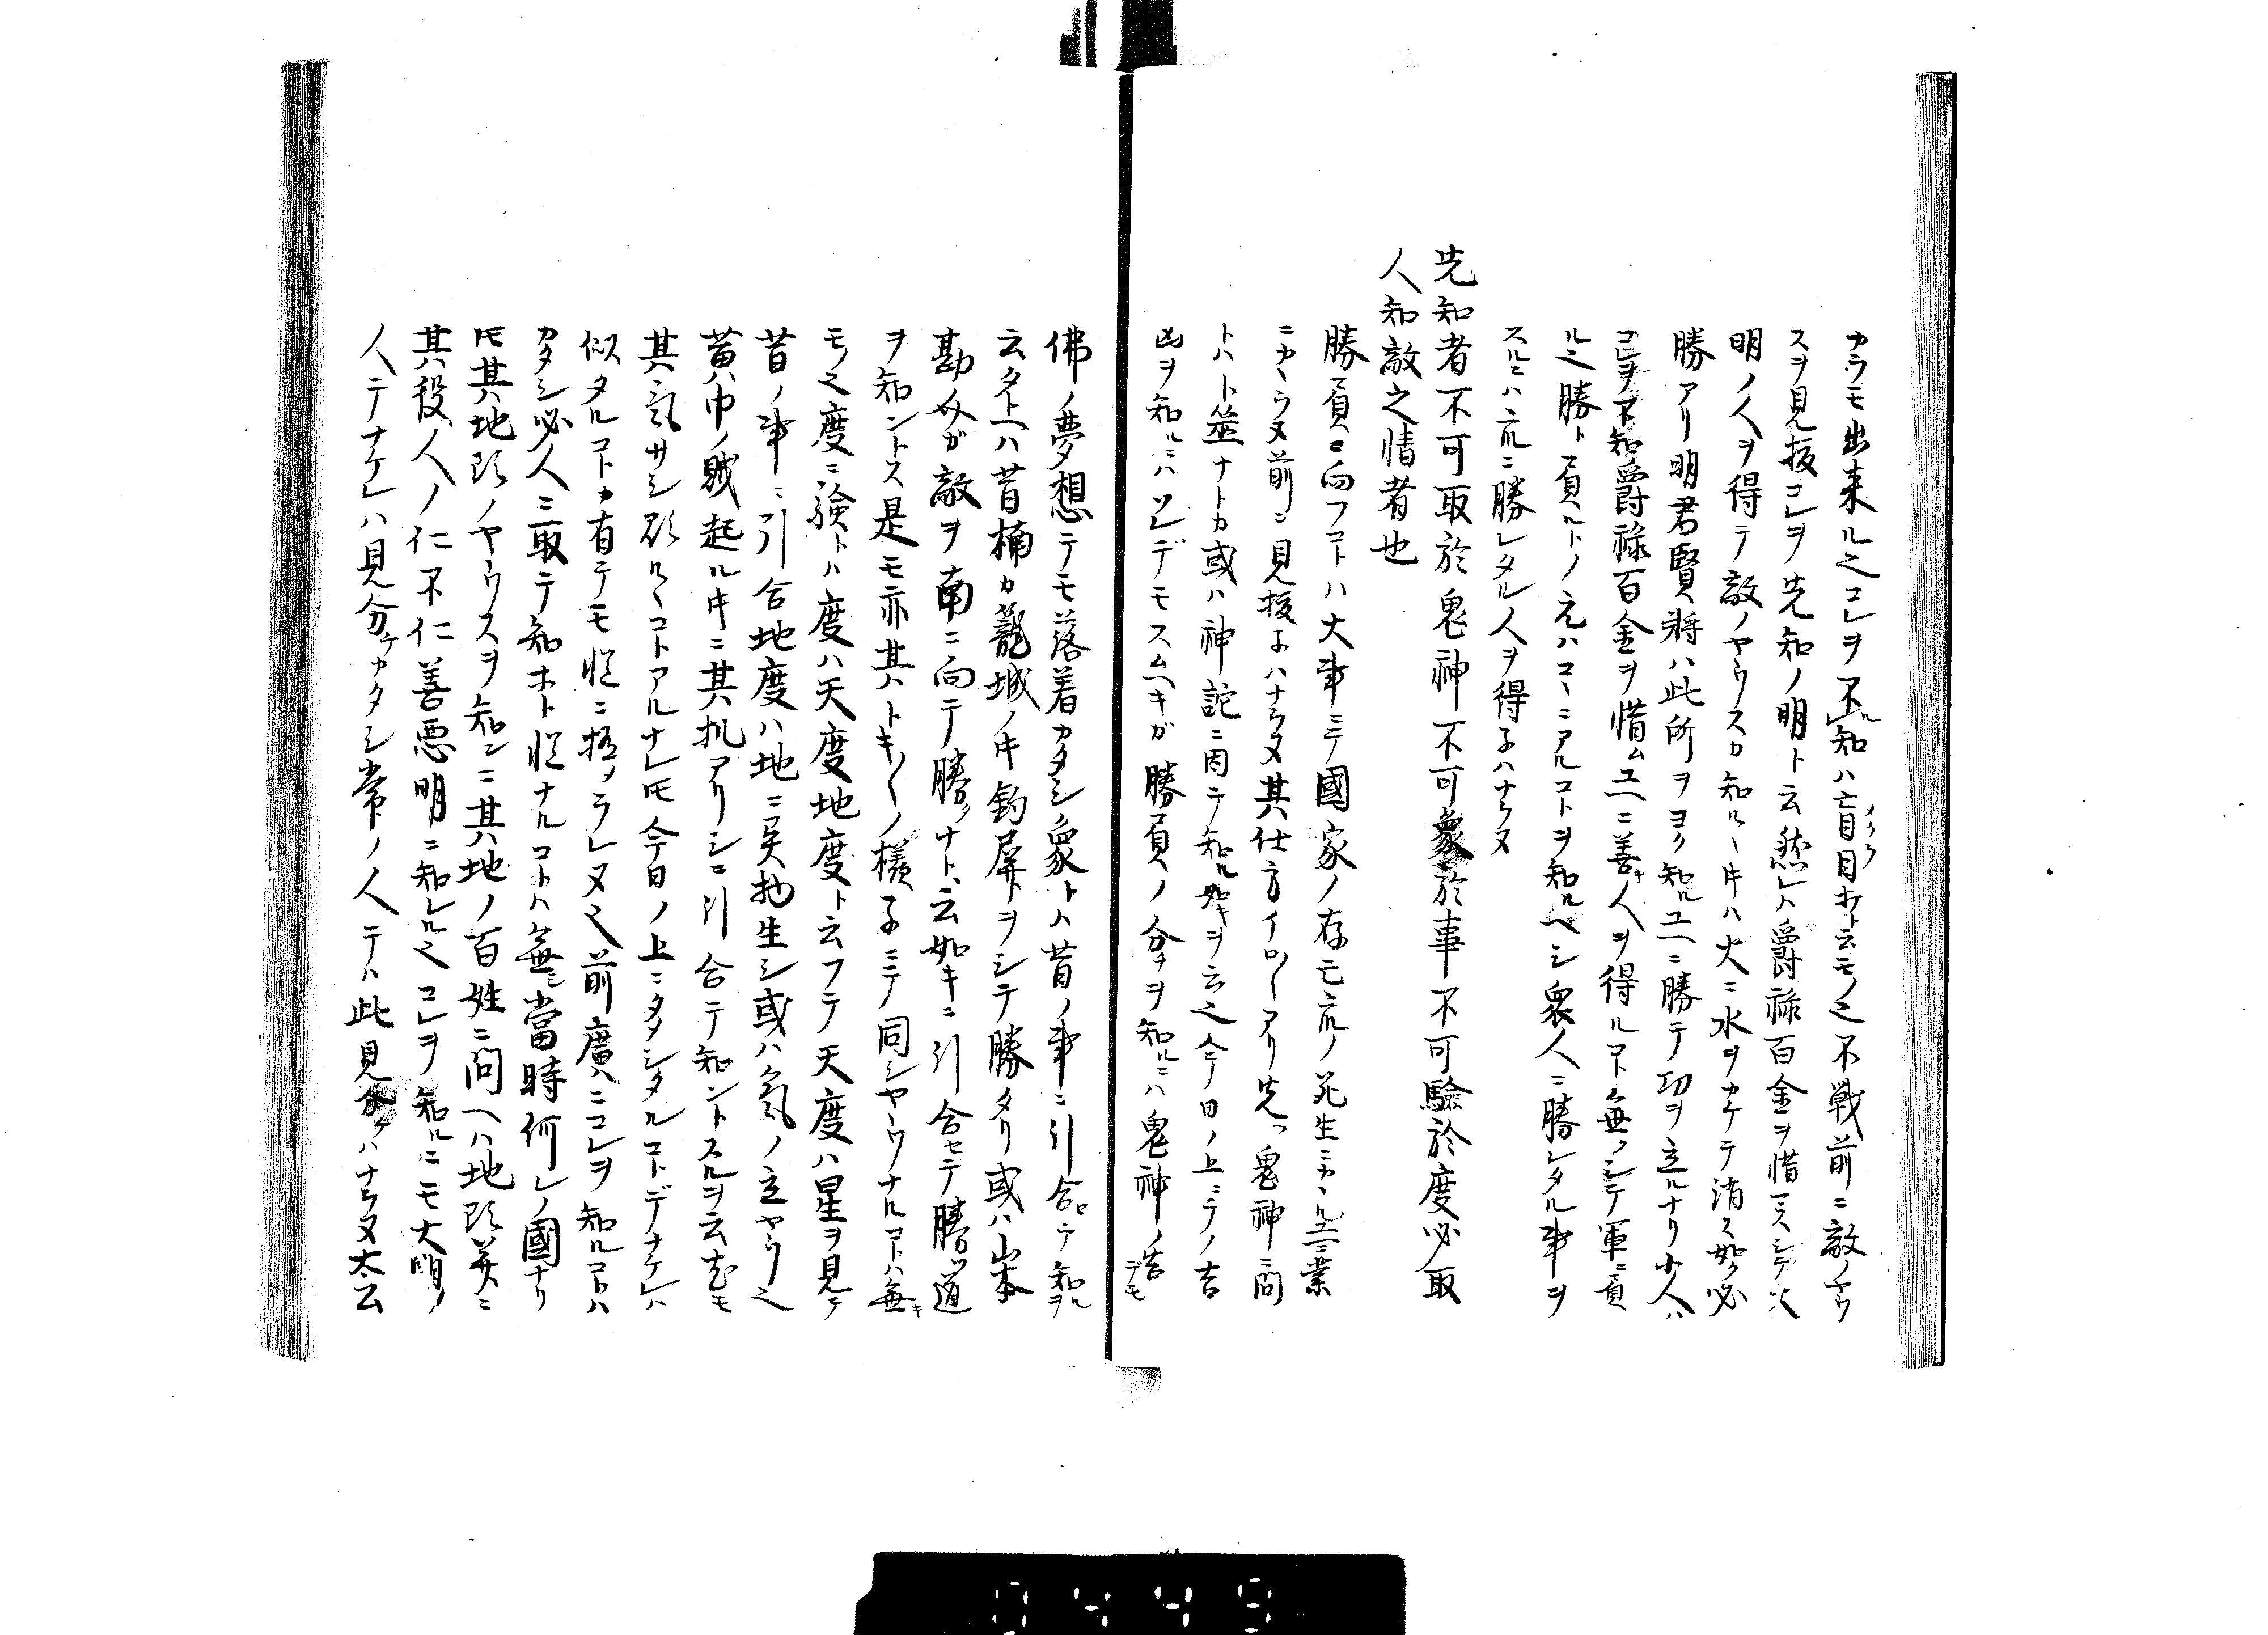 カラモ出来ル之コレヲ不知ルハ盲目ホト云モノ之不戦前ニ敵ノヤウ
メクラ
スヲ見抜コレヲ先知ノ明ト云然レハ爵禄百金ヲ惜マスシテ
明ノ人ヲ得テ敵ノヤウスカ知ルヽ𪜈ハ火ニ水ヲカケテ消ス如ク必
勝アリ明君賢将ハ此所ヲヨク知ルユヘニ勝テ功ヲ立ルナリ小人ハ
コレヲ不知爵禄百金ヲ惜ムユヘニ善キ人ヲ得ルコト無フシテ軍ニ負
ル之勝ト負ルトノ元ハコヽニアルコトヲ知ルヘシ衆人ニ勝レタル事ヲ
スルニハ亢ニ勝レタル人ヲ得子ハナラヌ
先知者不可取於鬼神不可象於事不可驗於度必取
人知敵之情者也
勝負ニ向フコトハ大事ニテ國家ノ存モ亡ノ死生ニカヽルユヘニ業
ニカヽラヌ前ニ見抜子ハナラヌ其仕方イロ〱アリ先ツ鬼神ニ問
トハト筮ナトカ或ハ神託ニ因テ知ル如キヲ云之今日ノ上ニテノ吉
凶ヲ知ルニハソレデモスムヘキガ勝負ノ分チヲ知ルニハ鬼神ノ告
デモ
佛ノ夢想テモ落着カタシ象トハ昔ノ事ニ引合セテ知ルヲ
云タトヘハ昔楠カ籠城ノ𪜈釣屏ヲシテ勝タリ或ハ山本
勘介ガ敵ヲ南ニ向テ勝タナト云如キニ引合セテ勝ツ道
ヲ知ントス是モ亦其ハトキ〱ノ様子ニテ同シヤウナルコトハ無キ
モノ之度ニ験トハ度ハ天度地度ト云フテ天度ハ星ヲ見テ
昔ノ事ニ引合地度ハ地ニ異物生シ或ハ気ノ立ヤウ之
黄巾ノ賊起ル𪜈ニ其机アリシニ引合テ知ントスルヲ云尤モ
其気サシ顕ルヽコトアルナレ𪜈今日ノ上ニタヽシタルコトデナケレハ
似タルコトカ有テモ慥ニ極メラレヌ之前廣ニコレヲ知ルコトハ
カタシ必人ニ取テ知ホト慥ナルコトハ無シ當時何レノ國ナリ
𪜈其地頭ノヤウスヲ知ンニ其地ノ百姓ニ問ヘハ地頭並ニ
其役人ノ仁不仁善悪明ニ知レル之コレヲ知ルニモ大明ノ
人テナケレハ見分ケカタシ常ノ人テハ此見分ケハナラヌ太公